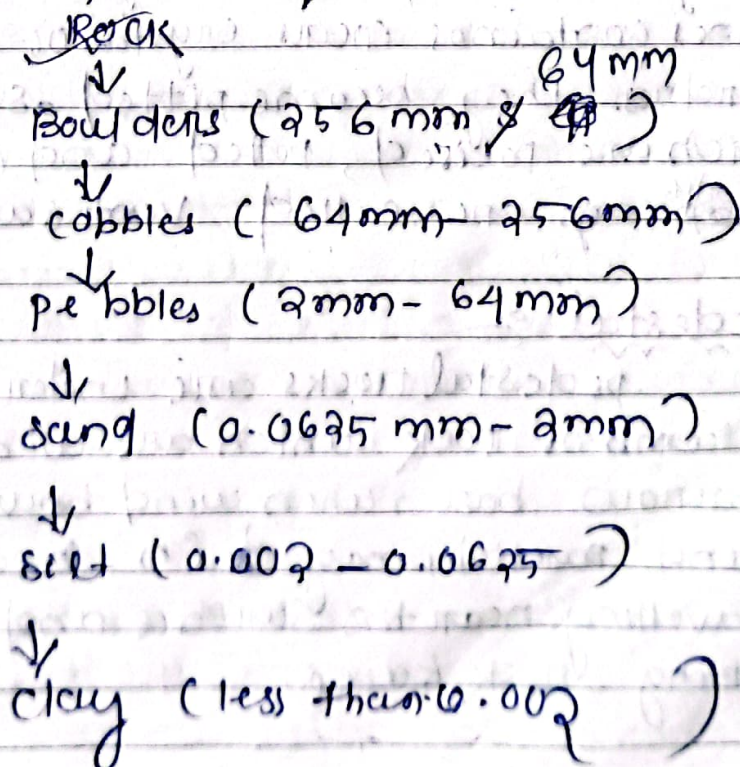 Rock
↓
64 mm
Boulders (256 mm &
↓
cobbles ( 64mm - 256mm)
↓
pebbles (2mm - 64mm)
↓
sand (0.0625 mm - 2mm)
↓
silt (0.002 - 0.0625)
↓
clay (less than 0.002 )